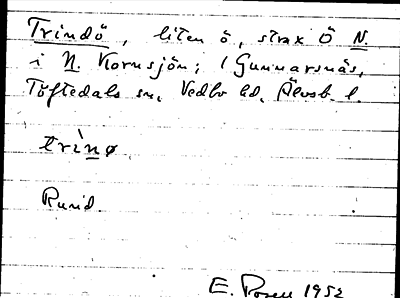 Trindö, liten ö, strax Ö N.
i N. Kornsjön; i Gunnarsnäs,
Töftedals sn, Vedbo hd, Älvsb. l.
trìnø
Rund.
E. Rosell 1952